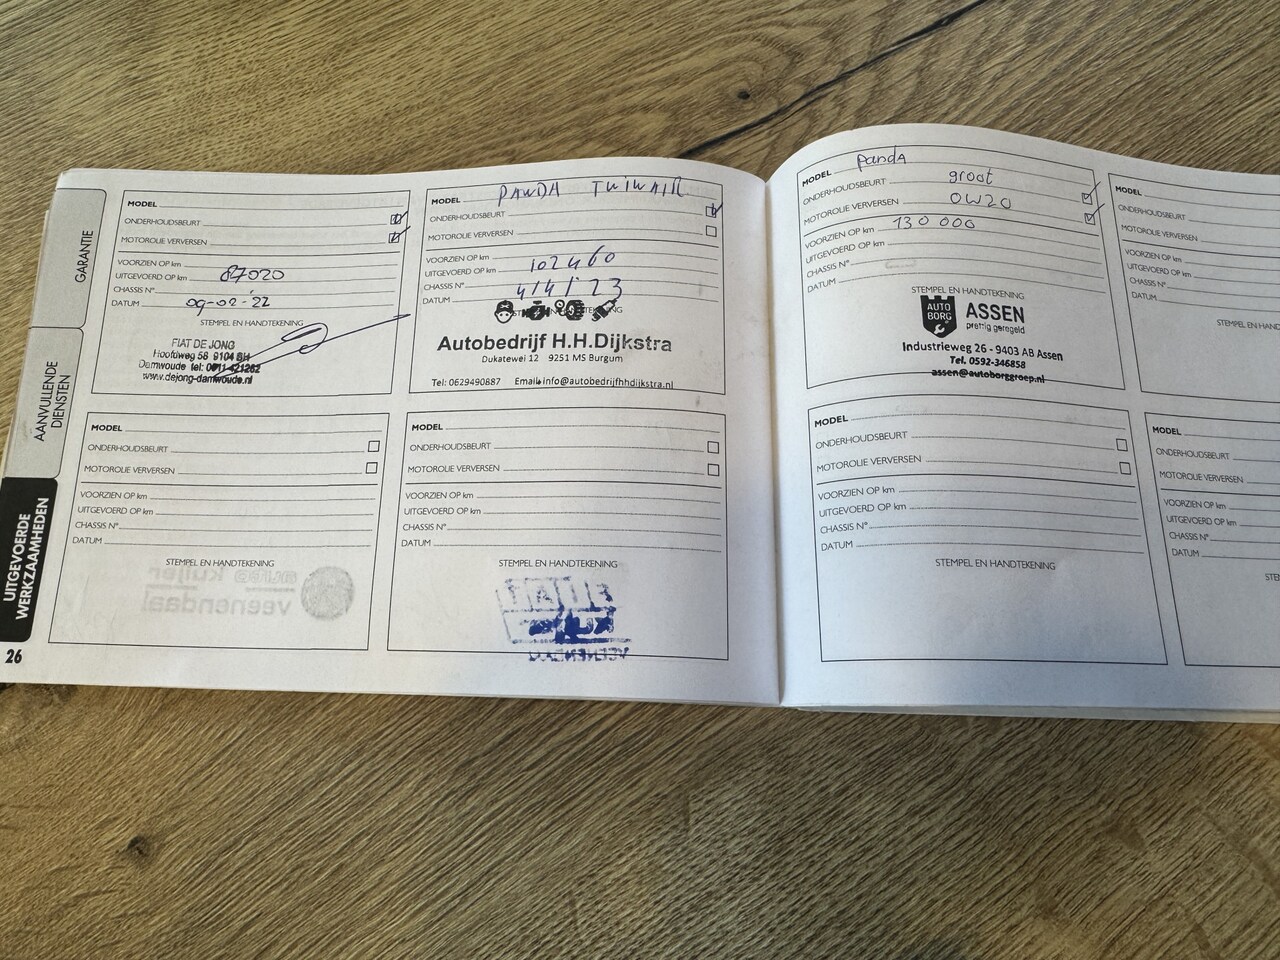 GARANTIE
AANVULLENDE
DIENSTEN
UITGEVOERDE
WERKZAAMHEDEN
26
MODEL
ONDERHOUDSBEURT
MOTOROLIE VERVERSEN
VOORZIEN OP km
UITGEVOERD OP km 87020
CHASSIS N°
DATUM 09-02-'22
STEMPEL EN HANDTEKENING
FIAT DE JONG
Hoofdweg 58 9104 BH
Damwoude tel: 0511-421262
www.dejong-damwoude.nl
MODEL PANDA TWINAIR
ONDERHOUDSBEURT
MOTOROLIE VERVERSEN
VOORZIEN OP km
UITGEVOERD OP km 102460
CHASSIS N°
DATUM 4/4/23
Autobedrijf H.H.Dijkstra
Dukatewei 12 9251 MS Burgum
Tel: 0629490887 Email: info@autobedrijfhhdijkstra.nl
MODEL
ONDERHOUDSBEURT
MOTOROLIE VERVERSEN
VOORZIEN OP km
UITGEVOERD OP km
CHASSIS N°
DATUM
STEMPEL EN HANDTEKENING
auto kuijer
veenendaal
MODEL
ONDERHOUDSBEURT
MOTOROLIE VERVERSEN
VOORZIEN OP km
UITGEVOERD OP km
CHASSIS N°
DATUM
STEMPEL EN HANDTEKENING
FIAT
VEENENDAAL
MODEL Panda
ONDERHOUDSBEURT groot
MOTOROLIE VERVERSEN 0W20
VOORZIEN OP km 130 000
UITGEVOERD OP km
CHASSIS N°
DATUM
STEMPEL EN HANDTEKENING
AUTO
BORG
ASSEN
prettig geregeld
Industrieweg 26 - 9403 AB Assen
Tel. 0592-346858
assen@autoborggroep.nl
MODEL
ONDERHOUDSBEURT
MOTOROLIE VERVERSEN
VOORZIEN OP km
UITGEVOERD OP km
CHASSIS N°
DATUM
STEMPEL EN HAND
MODEL
ONDERHOUDSBEURT
MOTOROLIE VERVERSEN
VOORZIEN OP km
UITGEVOERD OP km
CHASSIS N°
DATUM
STEMPEL EN HANDTEKENING
MODEL
ONDERHOUDSBEURT
MOTOROLIE VERVERSEN
VOORZIEN OP km
UITGEVOERD OP km
CHASSIS N°
DATUM
STE